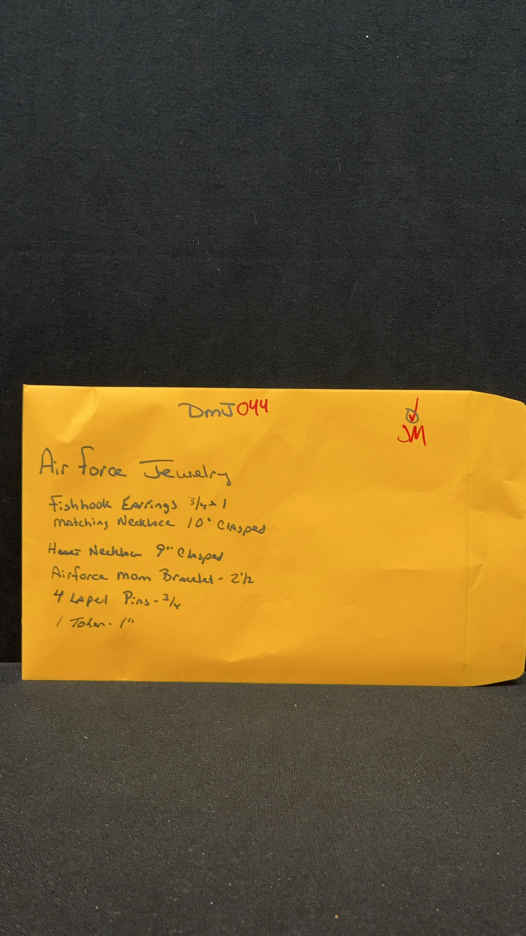 DMJ044
JM
Air force Jewelry
Fishhook Earrings 3/4 x 1
matching Necklace 10" Clasped
Heart Necklace 9" Clasped
Airforce mom Bracelet - 2 1/2
4 Lapel Pins - 3/4
1 Token - 1"